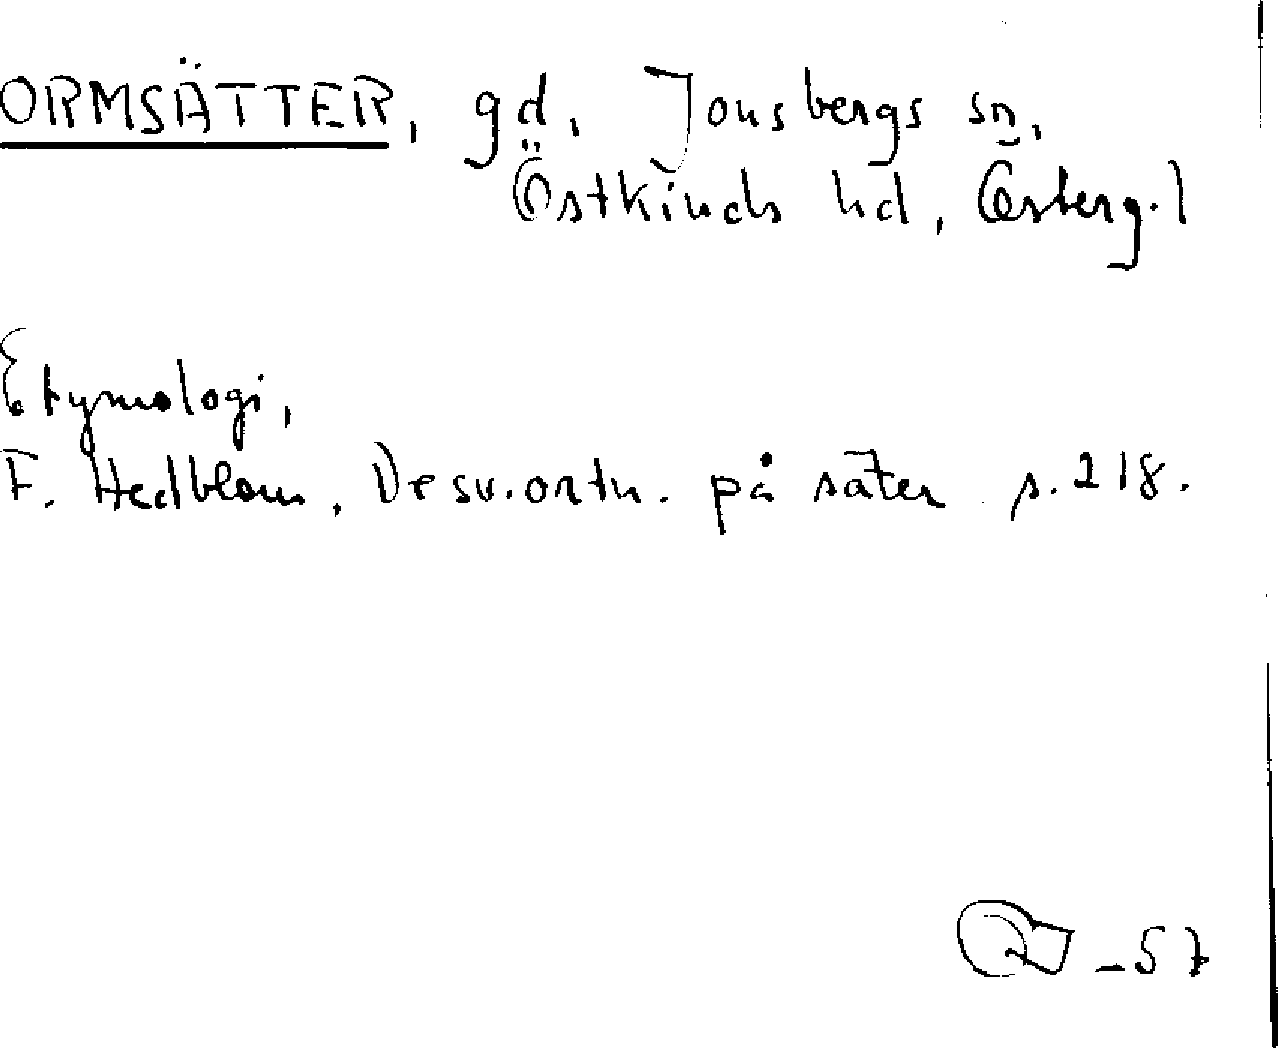 ORMSÄTTER, gd, Jonsbergs sn,
Östkinds hd, Österg.l
Etymologi,
F. Hedblom, De sv. ortn. på säter s. 218.
-57